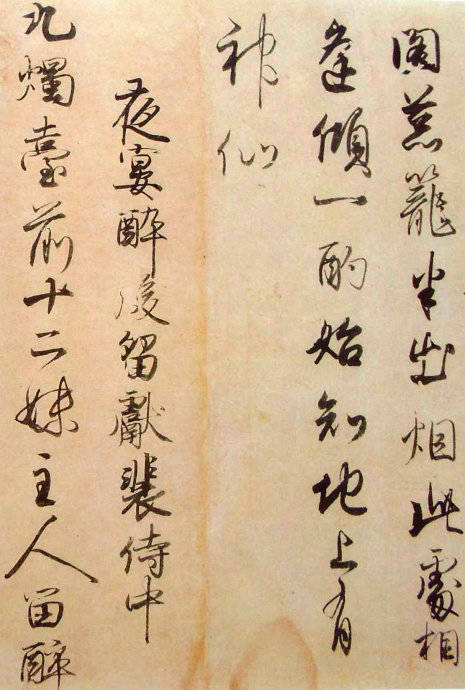 閣葱籠半出烟此處相
逢傾一酌始知地上有
神仙
夜宴醉後留獻裴侍中
九燭臺前十二姝主人留醉